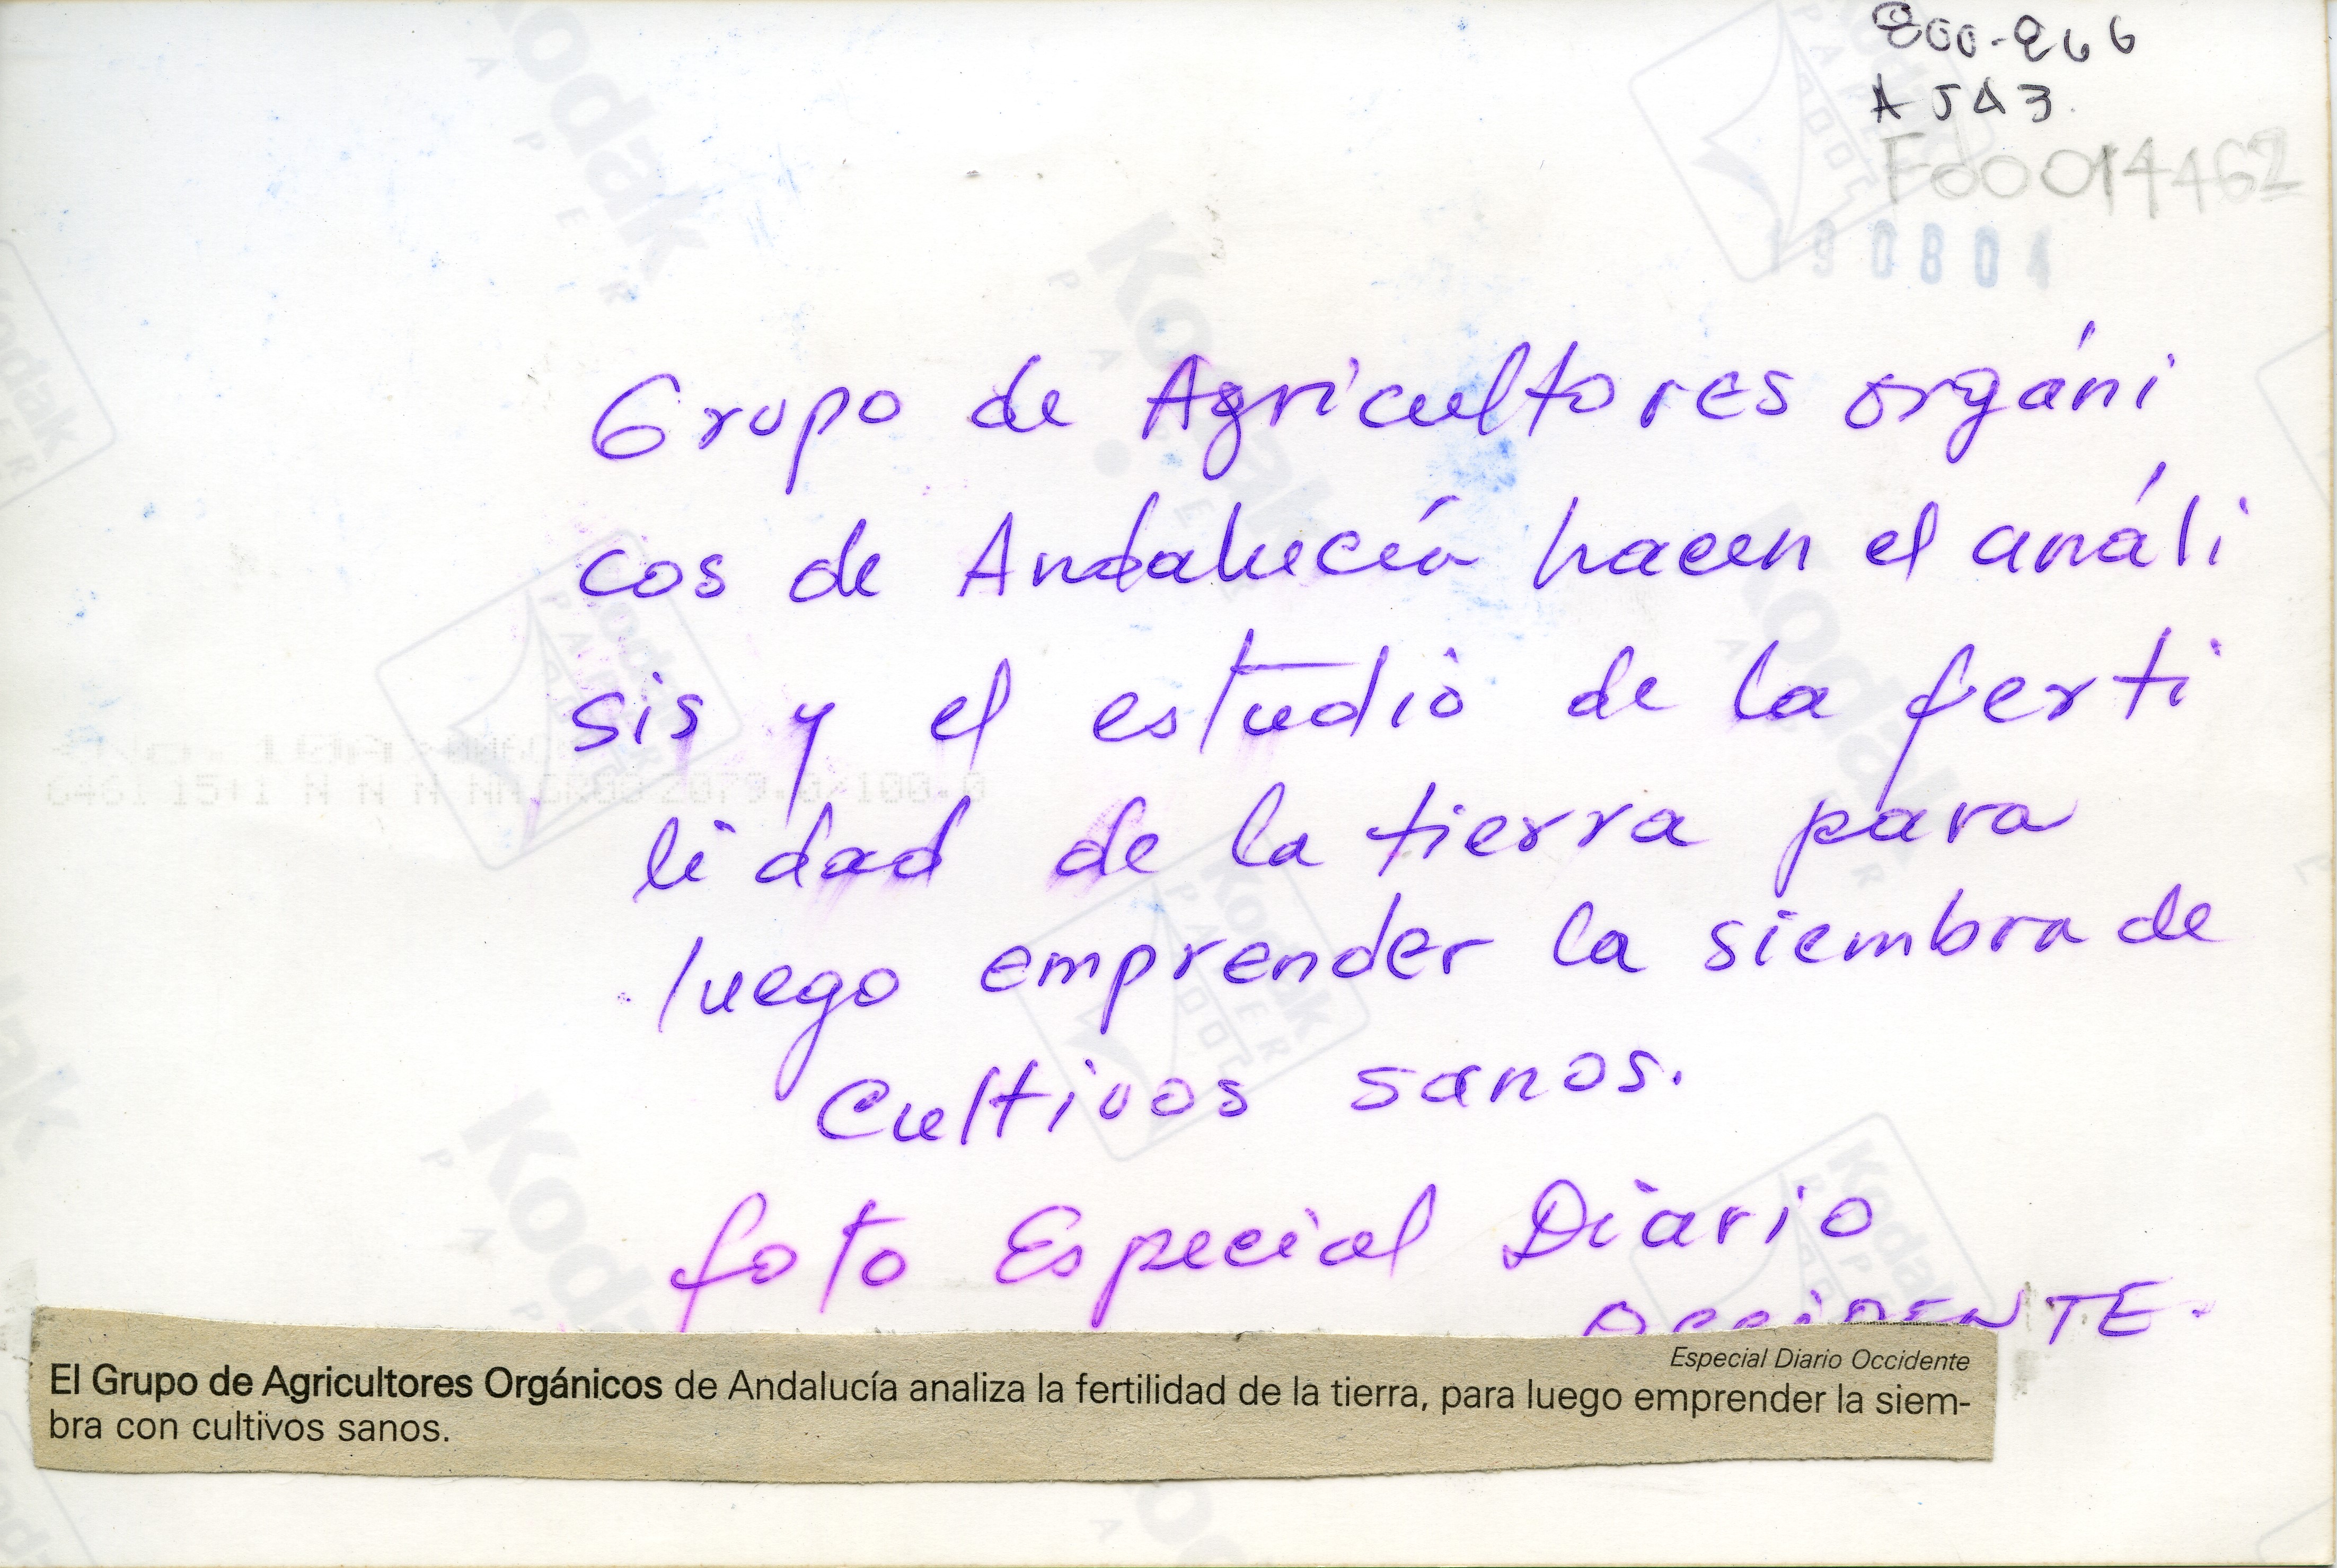 A 543
F00014462
190804
Grupo de Agricultores orgáni
cos de Andalucía hacen el análi
sis y el estudio de la ferti
lidad de la tierra para
luego emprender la siembra de
Cultivos sanos.
foto Especial Diario
OCCIDENTE.
Especial Diario Occidente
El Grupo de Agricultores Orgánicos de Andalucía analiza la fertilidad de la tierra, para luego emprender la siem-
bra con cultivos sanos.
Kodak
PAPER